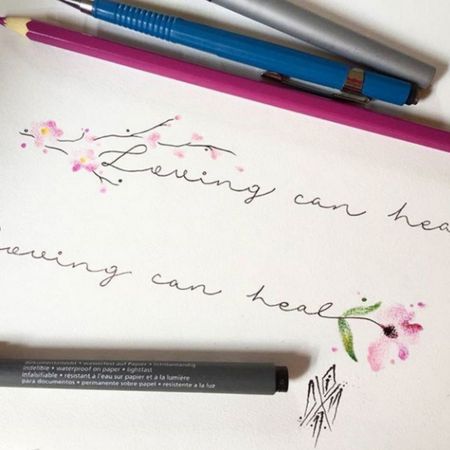 Loving can hea
Loving can heal
indelible • waterproof on paper • lightfast
infalsifiable • résistant à l'eau sur papier et à la lumière
para documentos • permanente sobre papel • resistente a la luz